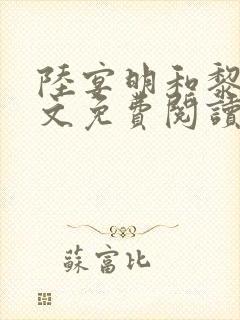 陸宴明和黎
文免費閱讀
蘇富比